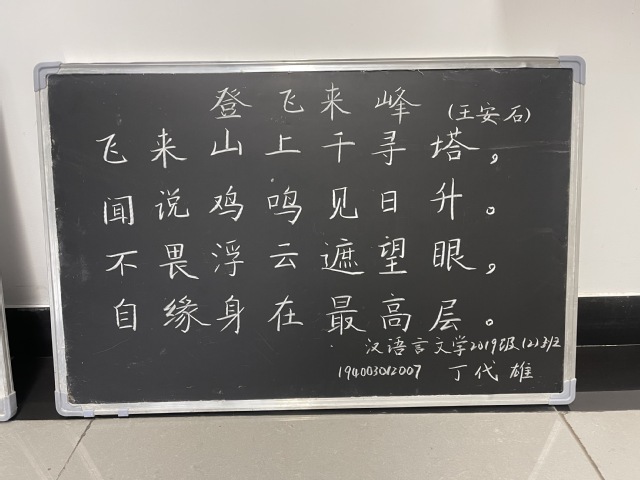 登飞来峰
(王安石)
飞来山上千寻塔，
闻说鸡鸣见日升。
不畏浮云遮望眼，
自缘身在最高层。
汉语言文学2019级(2)班
194003012007 丁代雄